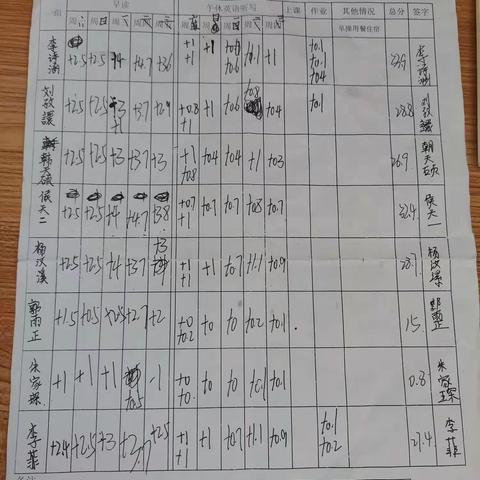 一组 早读 午休英语听写 上课 作业 其它情况 总分 签字
周 周 周 周 周 周 周 周 周 周 早操用餐住宿
李诗涵 +2.5 +2.5 +4 +4.7 +3.6 +1 +1 +1 +0.6 +1.1 +1 +0.1 +0.1 +0.4 李诗涵
刘苡諼 +2.5 +2.5 +3 +1 +3.7 +2.9 +0.8 +1 +1 +0.6 +0.8 +0.4 +0.1 28.8
韩天硕 +2.5 +2.5 +3 +3.7 +3 +1 +0.8 +0.4 +0.4 +1 +0.3 26.9
侯天二 +2.5 +2.5 +4 +4.7 +3.8 +0.7 +1 +0.7 +0.7 +0.8 +0.7 32.4 侯天一
杨汶溪 +2.5 +2.5 +4 +3.7 +3 +1 +1 +1 +0.7 +1.1 +0.9 28.7 杨汶溪
郭雨正 +1.5 +0.5 +2.5 +2.7 +2 +0 +0.2 +0 +0 +0.2 +0.1 15
朱家琛 +1 +1 +1 +0.5 -1 +0 +0 +0 +0.1 +0.1 0.8 朱家琛
李菲 +2.4 +2.5 +3 +3.7 +2.5 +1 +1 +1 +0.7 +1.1 +0.9 +0.1 +0.2 27.4 李菲